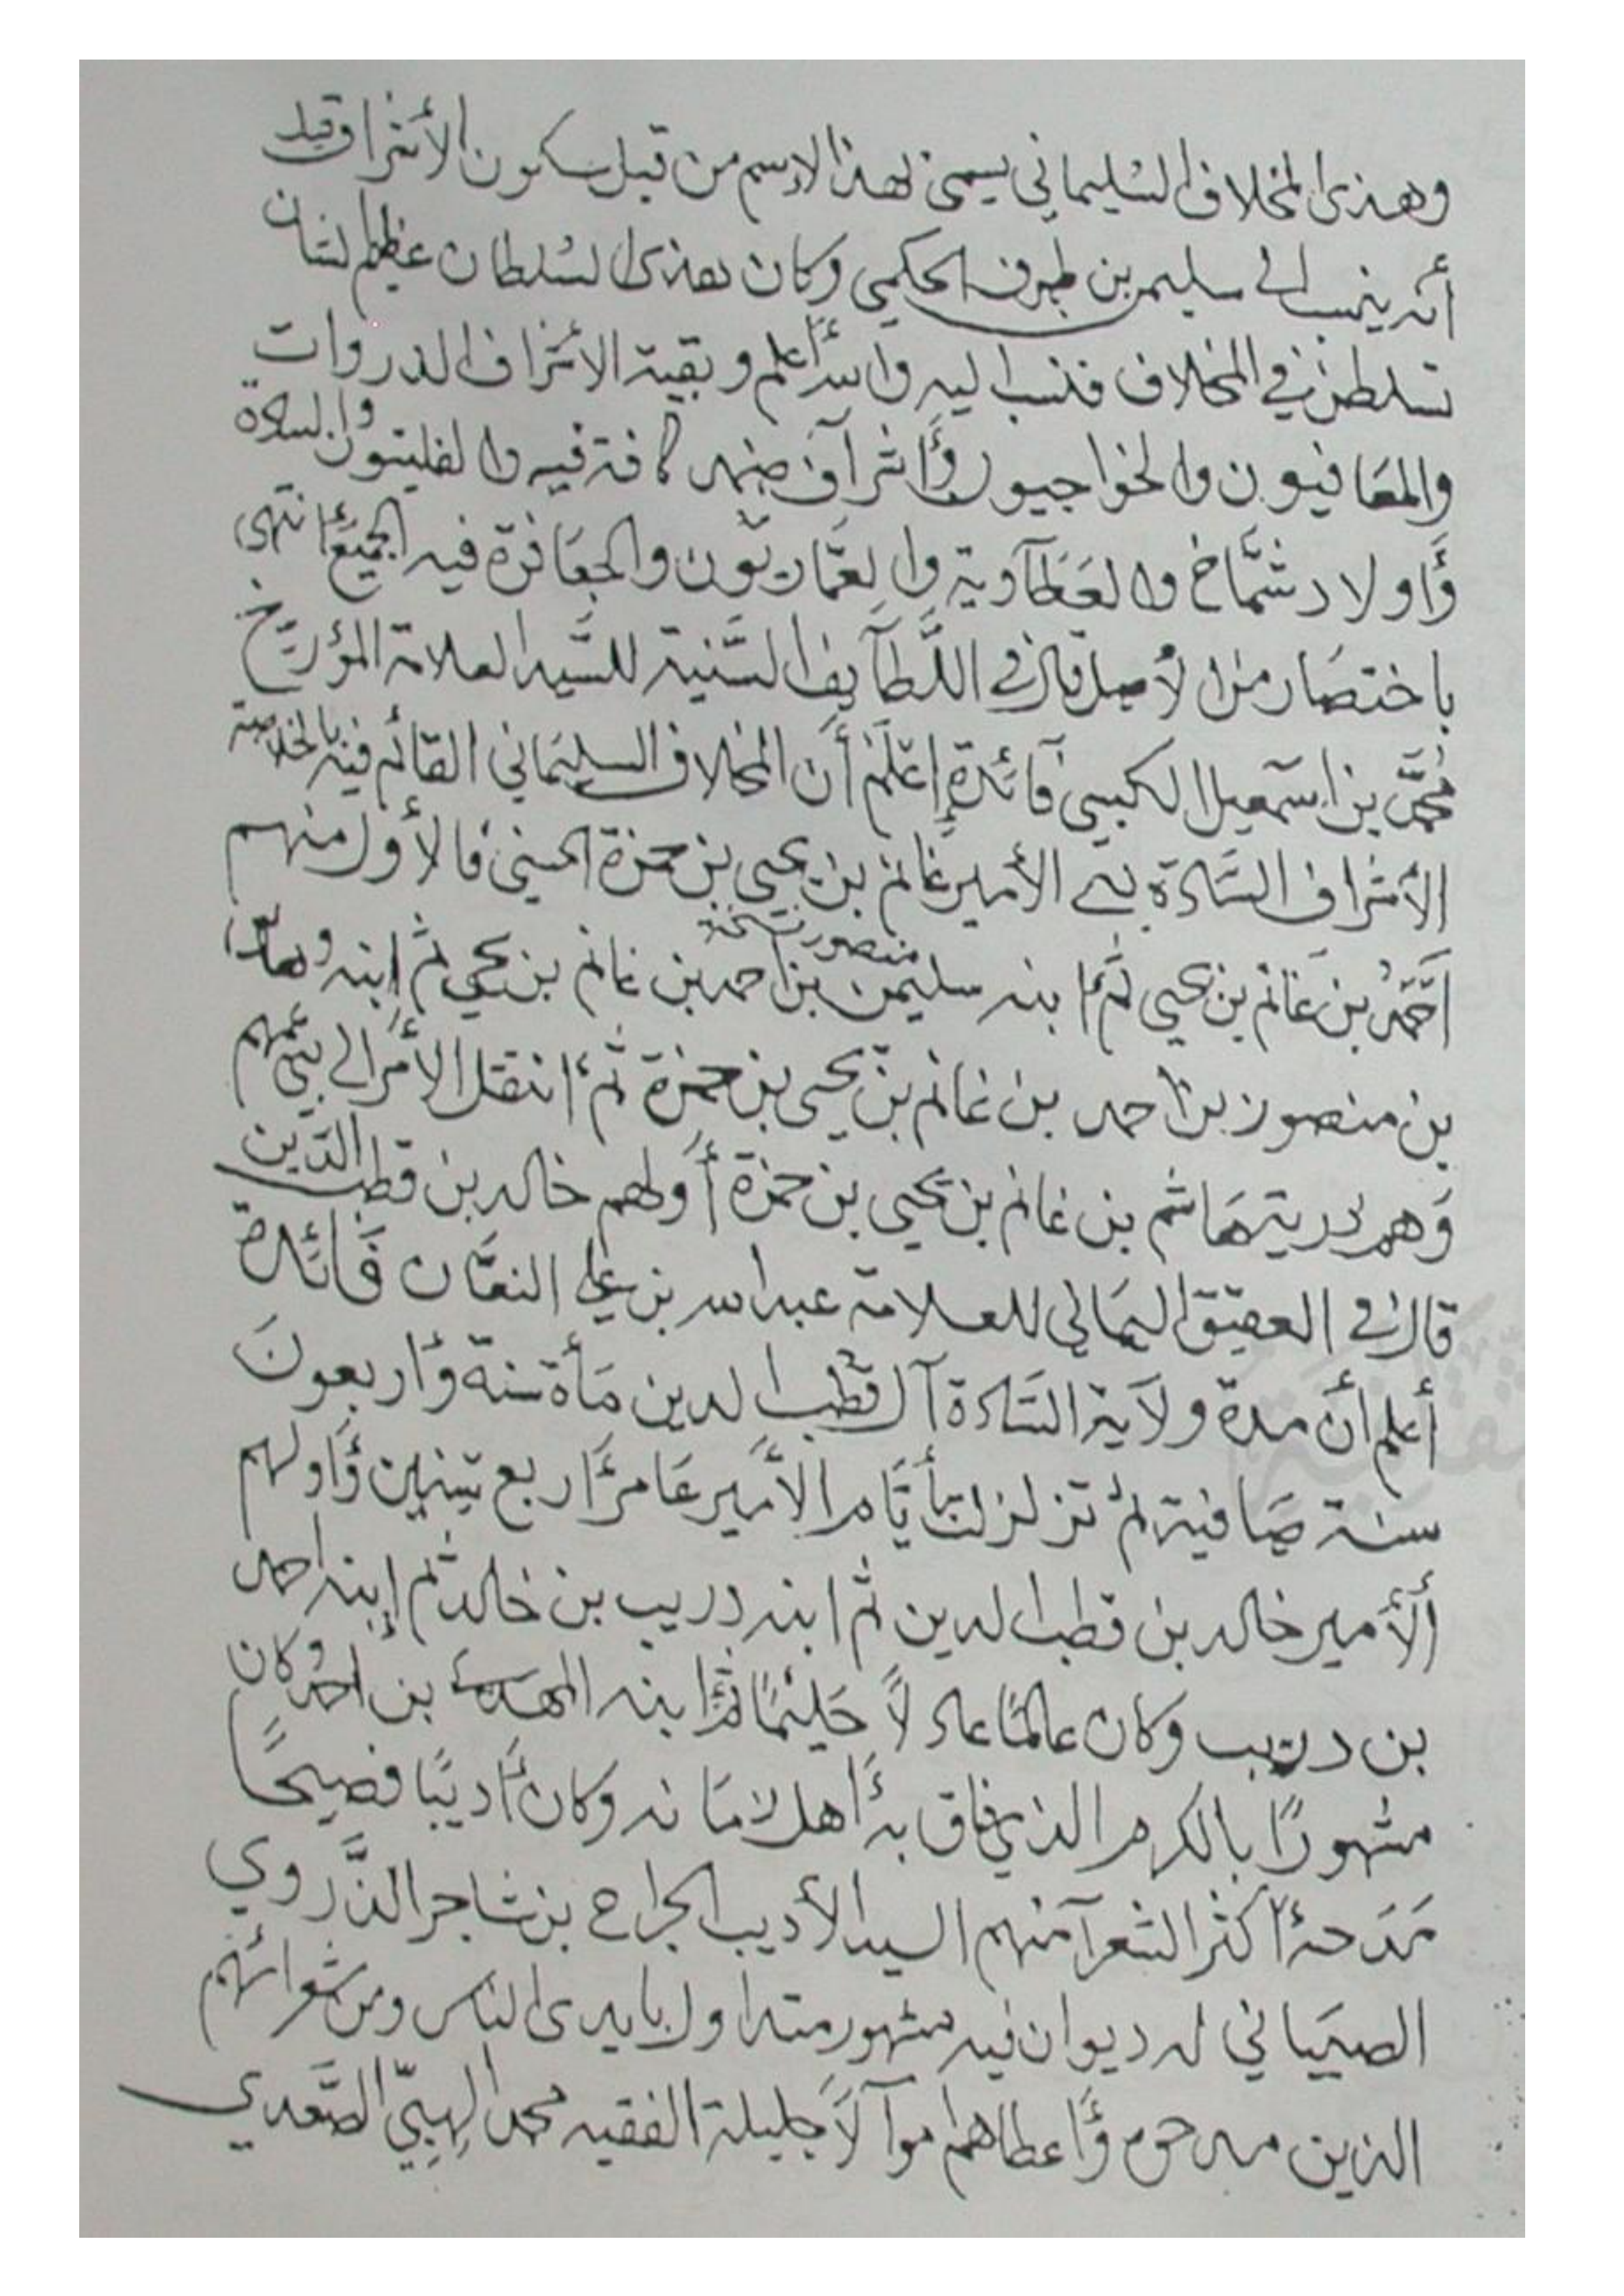 وهذى المخلاف السليماني يسمى بهذا الاسم من قبل سكون الأشراف وقيل
أنه ينسب الى سليمن بن طرف الحكمي وكان هذى السلطان عظيم الشان
تسلطن في المخلاف فنسب اليه والله أعلم وبقية الأشراف الذروات
والمعافيون والخواجيون وأشراف ضمد كافة فيه والفليتيون والسادة
وأولاد شمّاخ والعَطآوية والعمّاريّون والجعَافرة فيه الجميع انتهى
باختصَار من الأصل قال في اللّطآيف السّنية للسّيد العلامة المؤرّيخ
محمّد بن اسمعيل الكبسي فآئدة إعلَمْ أن المخلاف السليمَاني القائم فيه بالخلافة
الأشراف السّادة بني الأمير غانم بن يحيى بن حمزة الحسني فالأول منهم
احمد بن غانم بن يحيى ثم ابنه سليمن بن احمد بن غانم بن يحيى ثم ابنه وهاس
منصور نسخة
بن منصور بن احمد بن غانم بن يحيى بن حمزة ثم انتقل الأمر الى بني عمهم
وَهم ذرية هَاشم بن غانم بن يحيى بن حمزة أولهم خالد بن قطب الدّين
قال في العقيق اليمَاني للعلامة عبدالله بن علي النعمَان فَائدة
أعلم أن مدة ولاَية السّادة آل قطب الدين مَأة سنة وأربعونَ
سنة صَافية لم تزلزلت أيَّام الأمير عَامر أربع سنين وأولهم
الأمير خالد بن قطب الدين ثم ابنه دريب بن خالد ثم إبنه احمد
بن دريب وكان عالمًا عادلاً حَليمًا ثم ابنه المهدي بن احمد وكان
مشهورًا بالكرم الذي فاق به أهل زمَانه وكان أديبًا فصيحًا
مَدَحهُ أكثر الشعرآ منهم السيد الأديب الجراح بن شاجر الذّروي
الصبيَاني له ديوان فيه مشهور متداول بايدى الناس ومن شعرائهم
الذين مدحوه وأعطاهم اموآلاً جليلة الفقيه محمد الهِبِيّ الصَّعدي